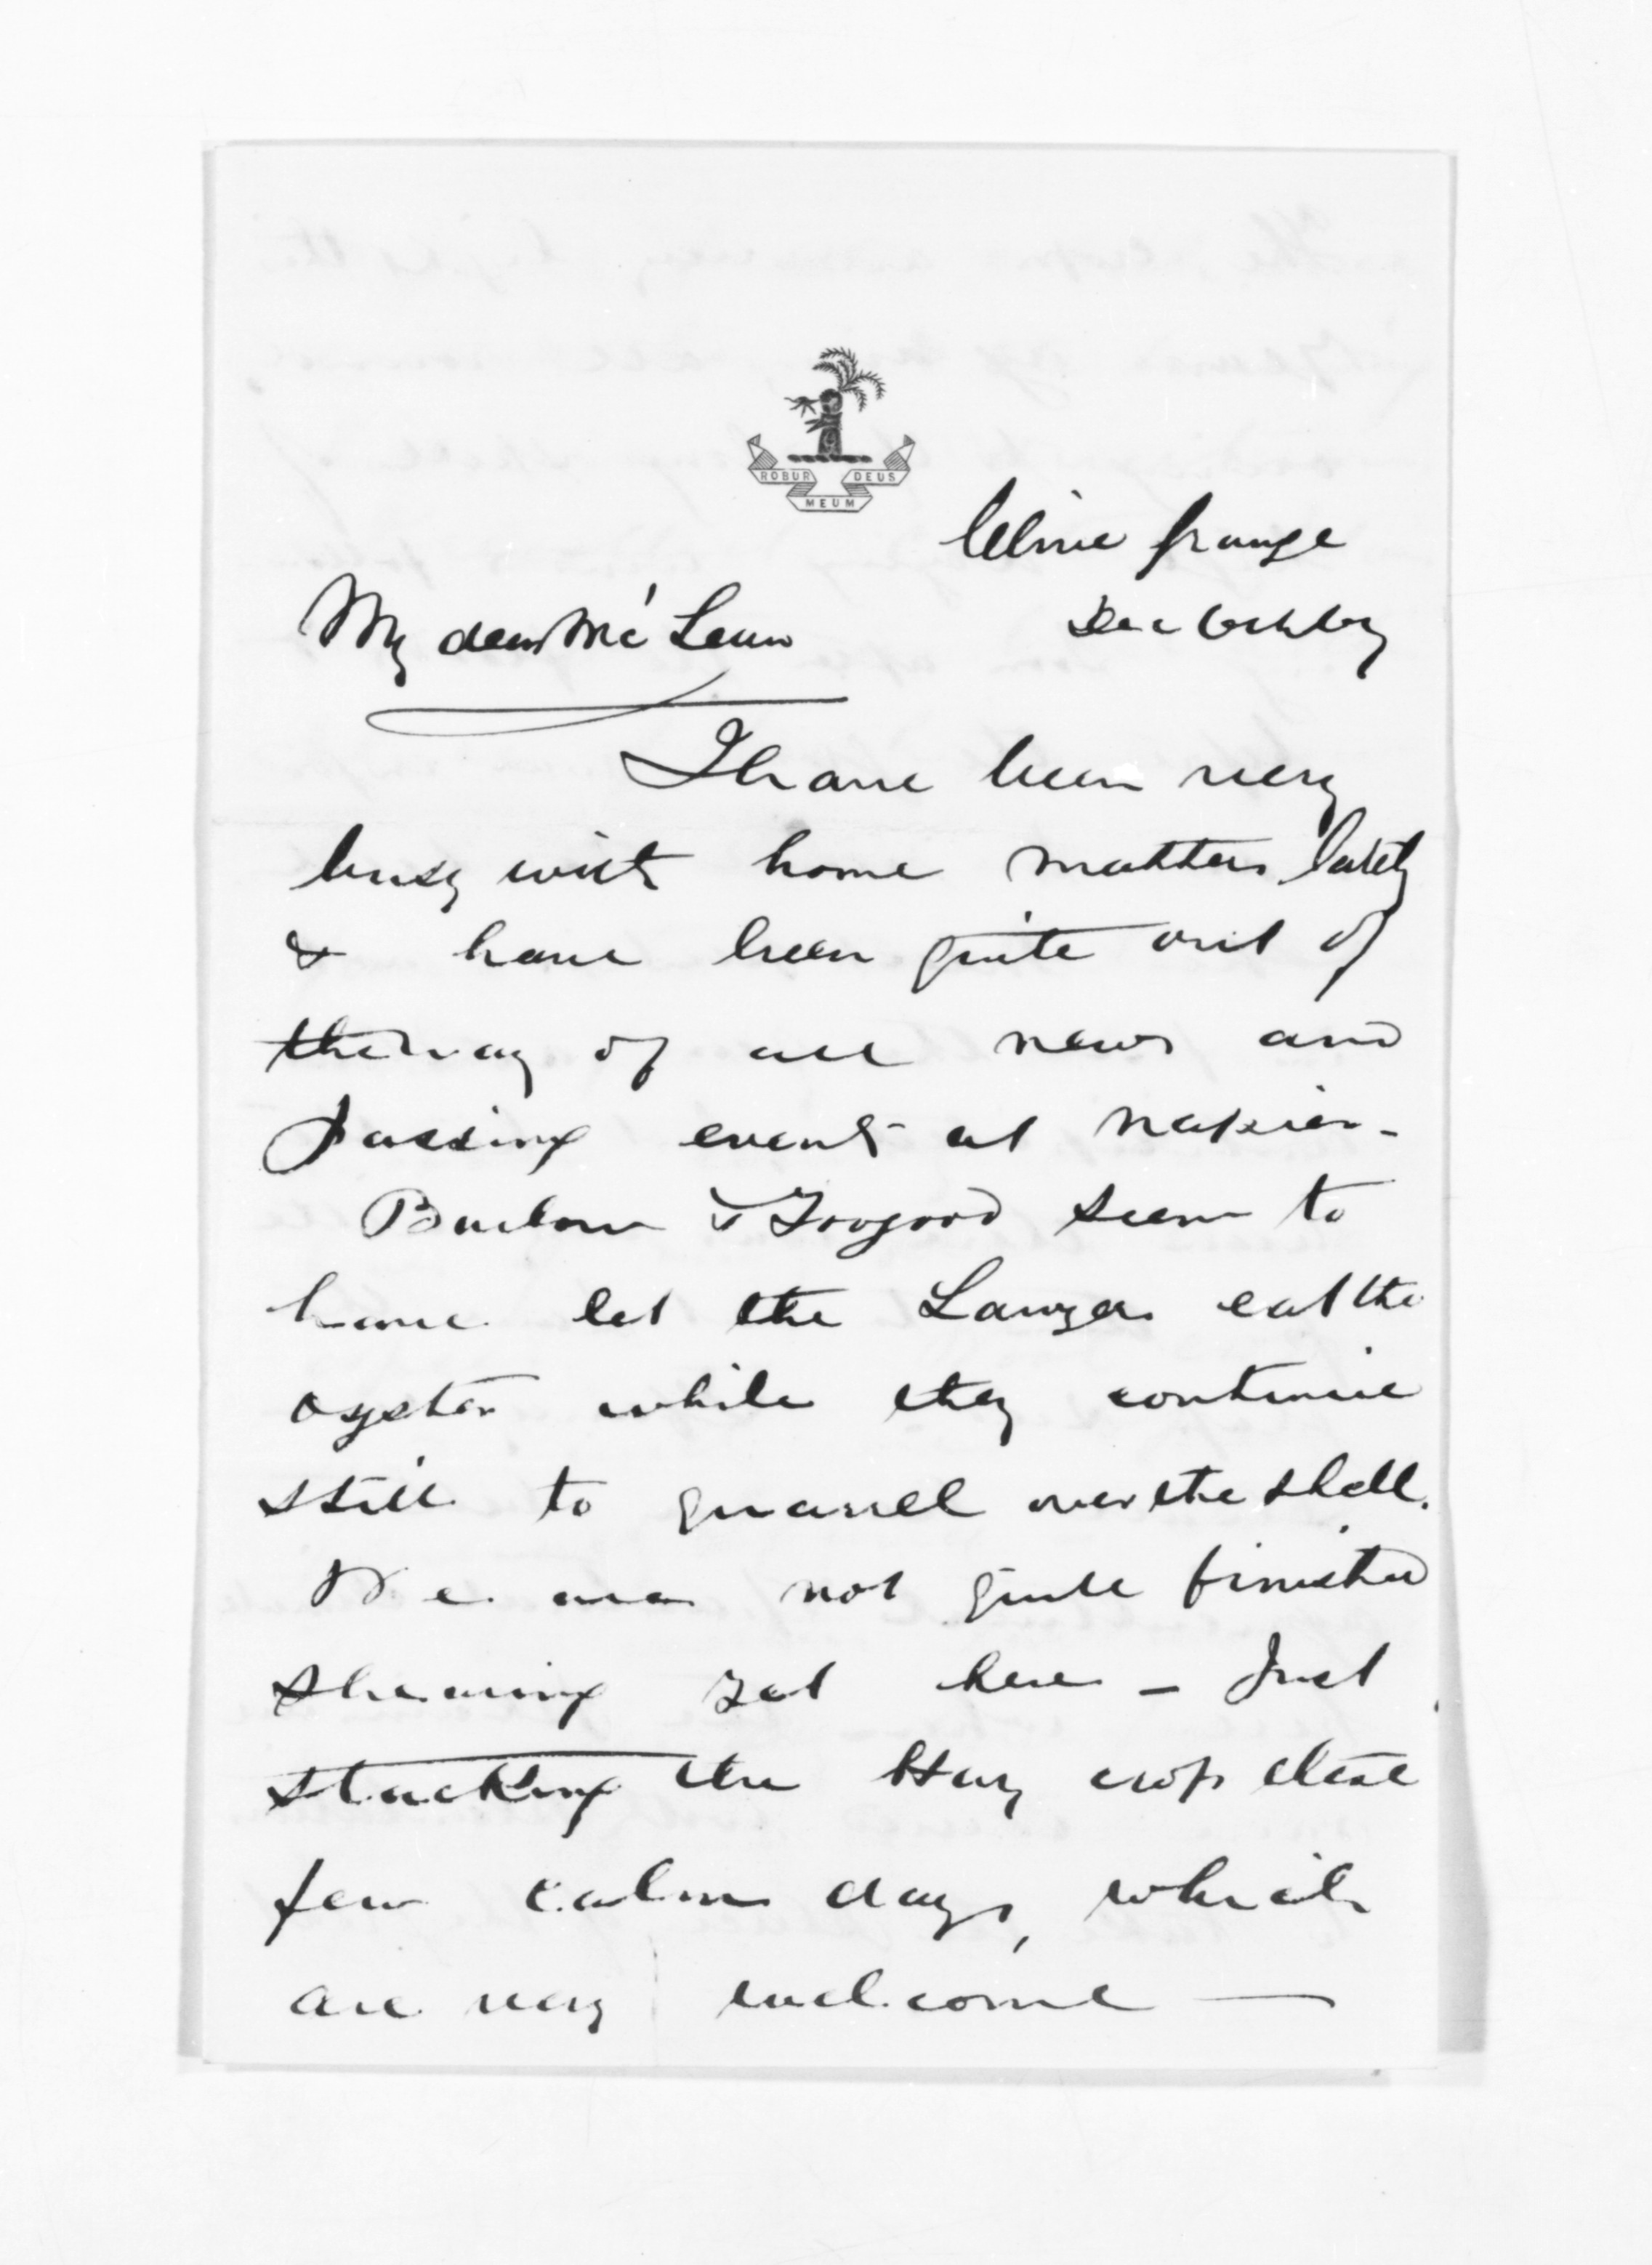 ROBUR MEUM DEUS
Clive Grange
My dear McLean
Dec
I have been very
busy with home matters lately
& have been quite out of
the way of all news and
passing events at Napier -
Barlow & Toogood seem to
have let the Lawyers eat the
oyster while they continue
still to quarrel over the shell.
We are not quite finished
shearing yet here - Just
stacking the Hay crop these
few calm days, which
are very welcome —